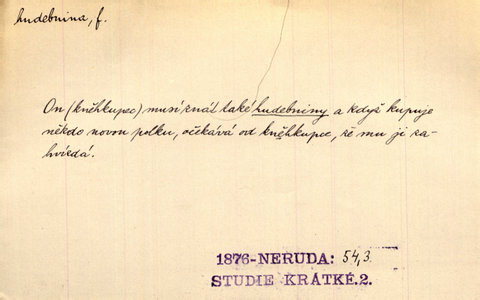 hudebnina, f.
On (kněhkupec) musí znát také hudebniny a když kupuje
někdo novou polku, očekává od kněhkupce, že mu ji za-
hvízdá.
1876-NERUDA: 54,3.
STUDIE KRÁTKÉ.2.